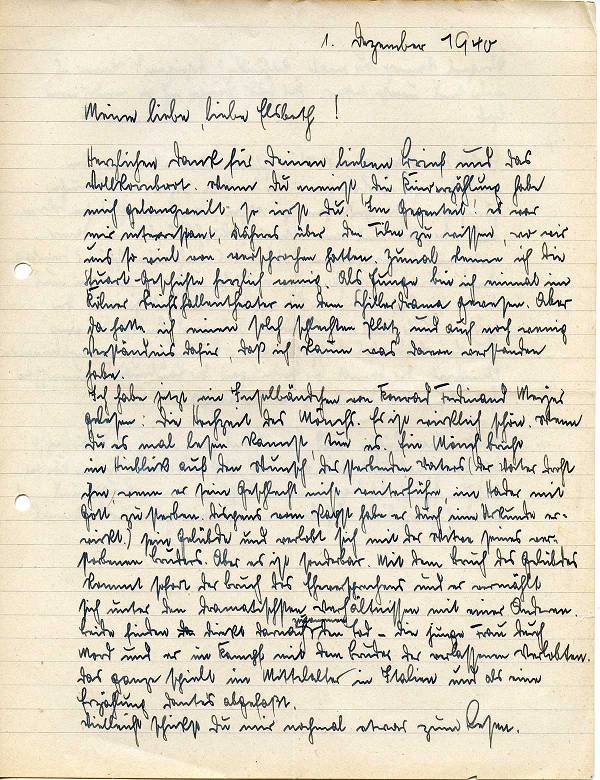 1. Dezember 1940
Meine liebe, liebe Elsbeth!
Herzlichen Dank für Deinen lieben Brief und das
Wenn Du meinst, die Filmerzählung habe
mich gelangweilt, so irrst Du. Im Gegenteil, es war
mir interessant, Näheres über den Film zu wissen, wo wir
uns so viel von versprochen hatten. Zumal kenne ich die
Stuart-Geschichte herzlich wenig. Als Junge bin ich einmal im
Kölner Reichshallentheater in dem Schillerdrama gewesen. Aber
da hatte ich einen solch schlechten Platz und auch noch wenig
Verständnis dafür, daß ich kaum was davon verstanden
habe.
Ich habe jetzt ein Inselbändchen von Konrad Ferdinand Meyer
gelesen: Die Hochzeit des Mönchs. Es ist wirklich schön. Wenn
Du es mal lesen kannst, tue es. Ein Mönch bricht
im Hinblick auf den Wunsch des sterbenden Vaters (der Vater droht
ihm, wenn er sein Geschlecht nicht weiterführe, im Hader mit
Gott zu sterben. Dispens vom Papst habe er durch eine Urkunde er-
wirkt) sein Gelübde und verlobt sich mit der Witwe seines ver-
storbenen Bruders. Aber es ist sonderbar. Mit dem Bruch des Gelübdes
kommt sofort der Bruch des Eheversprechens und er vermählt
sich unter den dramatischsten Verhältnissen mit einer Anderen.
Beide finden direkt darauf den Tod - die junge Frau durch
Mord und er im Kampfe mit dem Bruder der verlassenen Verlobten.
Das ganze spielt im Mittelalter in Italien und als eine
Erzählung Dantes abgefaßt.
Vielleicht schickst Du mir nochmal etwas zum Lesen.